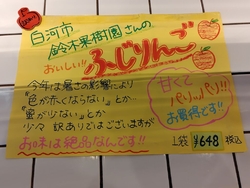 白河市
鈴木果樹園さんの
おいしい!! ふじりんご
今年は暑さの影響により
"色が赤くならない"とか
"蜜が少ない"とか
ツマ 訳ありでございますが
お味は絶品なんです!!
甘くて
パリッパリ!!!
お買得です!!
1袋 ¥648 税込